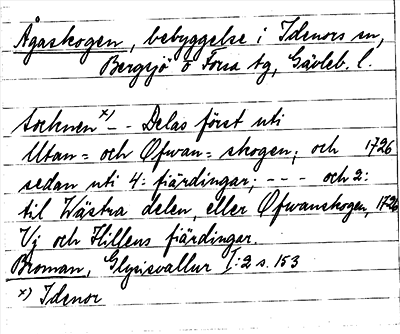 Ågaskogen, bebyggelse i Idenors sn,
Bergsjö o Forsa tg, Gävleb. l.
socknen x) - - Delas först uti
Utan= och Ofwan=skogen; och 1726
sedan uti 4: fiärdingar; - - - och 2:
til Wästra delen, eller Ofwanskogen, 1726
Vj och Hillens fiärdingar.
Broman, Glysisvallur I:2 s. 153
x) Idenor